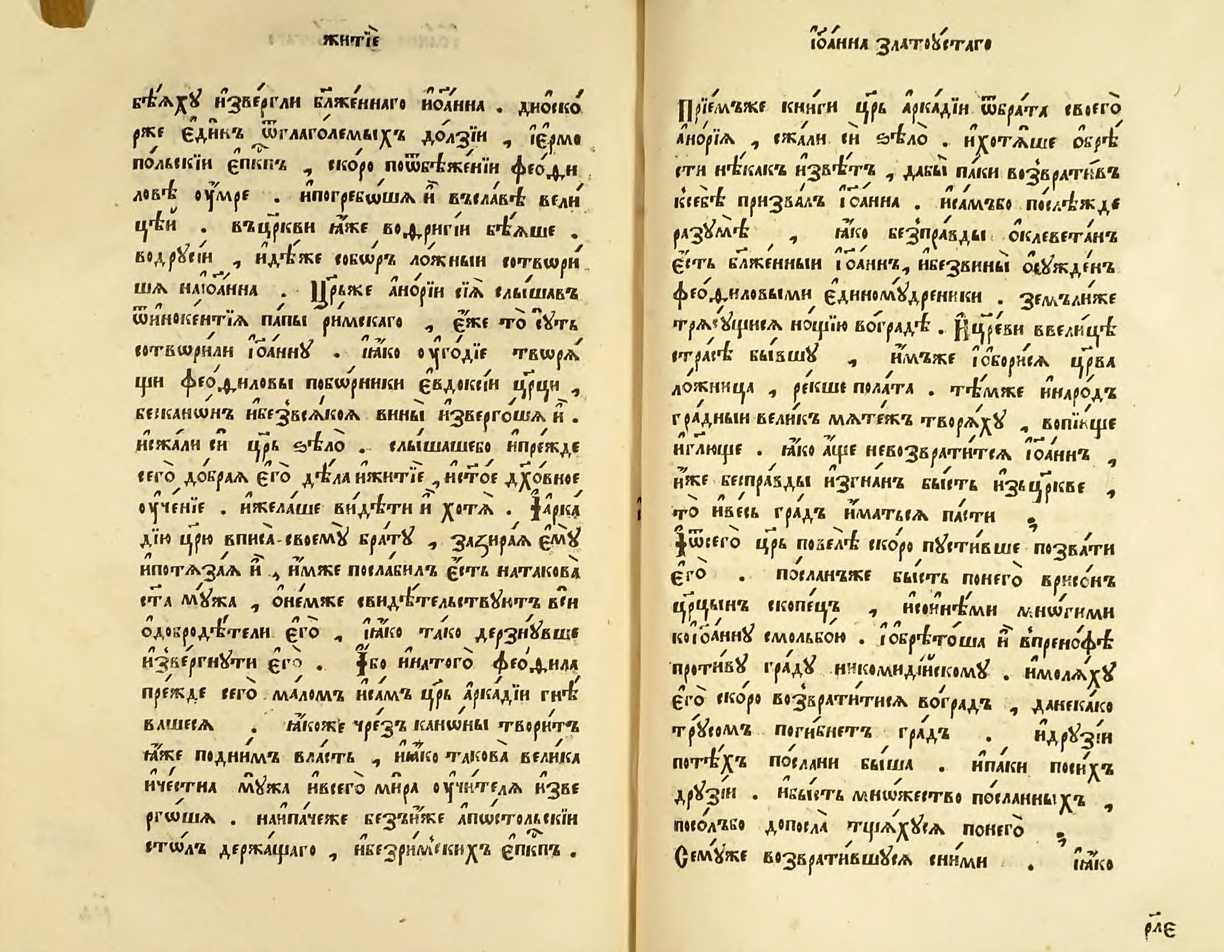 житїѐ
бѣ́ѧхꙋ и҆зве́ргли бл҃же́ннаго и҆ѡа́нна . дио́ско
рже є҆ди́нъ ѿглаго́лемыхъ до́лзїи , і҆е́рмо
по́льскїи є҆пкⷭ҇пъ , ско́ро поѿбѣже́нїи ѳео́ѳи
ловѣ оу҆́мре . ипогребо́шѧ и҆̀ въсла́вѣ вели́
цѣи . въцр҃кви ꙗ҆́же воѳриги́и бѣ́ѧше .
водрꙋсі́и , и҆дѣ́же собѡ́ръ ло́жныи сотвори́
шѧ наіѡа́нна . Цр҃ьже а҆но́рїи сїѧ̀ слы́шавъ
ѿи҆ноке́нтїѧ па́пы ри́мскаго , є҆́же то̀ сꙋ́ть
сотвѡри́ли і҆ѡа́ннꙋ . ꙗ҆́ко оу҆го́дїе творѧ́
щи ѳео́ѳиловы побѡ́рники є҆вдоксі́и цр҃ци ,
бесканѡ́нъ ибезвсѧ́коѧ вины̀ и҆зверго́шѧ и҆̀ .
исжа́ли си́ цр҃ь ѕѣлѡ̀ . слы́шашебо и҆пре́жде
сего̀ до́браѧ є҆гѡ̀ дѣ́ла ижитїѐ , и҆сто́е дх҃о́вное
оу҆че́нїе . ижела́ше ви́дѣти и҆̀ хотѧ̀ . І҆арка́
дїю цр҃ю вписа̀ своемꙋ̀ бра́тꙋ , зази́раѧ є҆мꙋ̀
ипотѧ́заѧ и҆̀ , и҆́мже посла́билъ є҆́сть натакова̀
ста мꙋ́жа , о҆не́мже свидѣ́тельствꙋютъ вси̑
одобродѣ́тели є҆гѡ̀ , ꙗ҆́ко та́ко дерзнꙋ́вше
и҆зве́ргнꙋти є҆го̀ . І҆́бо ина́того ѳео́ѳила
пре́жде сего̀ ма́ломъ иса́мъ цр҃ь а҆рка́дїи гнѣ́
вашесѧ . ꙗ҆́коже чрезъ канѡ́ны твори́тъ
ꙗ҆́же под̾ни́мъ вла́сть , иꙗ҆́ко такова̀ вели́ка
иче́стна мꙋ́жа ивсего̀ ми́ра оу҆чи́телѧ и҆зве
рго́шѧ . наипа́чеже безъи́же а҆пѡ́стольскїи
стѡ́лъ держа́щаго , ибезри́мскихъ є҆пкⷭ҇пъ .
і҆ѡа́нна златоꙋ́стаго
Прїе́мъже книги цр҃ь а҆рка́дїи ѿбра́та своего̀
а҆но́рїѧ , сжа́ли си́ ѕѣлѡ̀ . ихотѧ́ше ѡ҆брѣ́
сти нѣ́какъ и҆звѣ́тъ , дабы̀ па́ки возврати́въ
ксебѣ̀ призва́лъ і҆ѡа́нна . иса́мъбо послѣ́жде
разꙋмѣ̀ , ꙗ҆́ко безпра́вды ѡ҆клевета́нъ
є҆́сть бл҃же́нныи і҆ѡа́ннъ, ибезвины̀ ѡ҆сꙋжде́нъ
ѳео́ѳиловыми є҆диномꙋ́дреники . земълиже
трѧ́сꙋщисѧ но́щїю вогра́дѣ . И҆цр҃еви ввели́цѣ
стра́сѣ бы́вшꙋ , и҆́мъже і҆ѡбори́сѧ цр҃ва
ло́жница , ре́кше пола́та . тѣ́мже инаро́дъ
гра́дныи вели́къ мѧте́жъ творѧ́хꙋ , вопїю́ще
иг҃люще . ꙗ҆́ко а҆́ще невозврати́тсѧ і҆ѡа́ннъ ,
и҆́же беспра́вды и҆згна́нъ бы́сть и҆зъцр҃кве ,
то̀ иве́сь гра́дъ и҆́матьсѧ па́сти
І҆ѿсего̀ цр҃ь повелѣ̀ ско́ро пꙋсти́вше позва́ти
є҆го̀ . по́сланъже бы́сть понего̀ врисо́нъ
цр҃цынъ скопе́цъ , исои҆нѣ́ми мно́гими
коі҆ѡа́ннꙋ смольбо́ю . і҆ѡбрѣто́ша и҆̀ впрено́фѣ
проти́вꙋ гра́дꙋ никомиди́йскомꙋ . имолѧ́хꙋ
є҆го̀ ско́ро возврати́тисѧ вогра́дъ , данека́ко
трꙋ́сомъ поги́бнетъ гра́дъ . идрꙋзі́и
потѣ́хъ по́слани бы́ша . ипа́ки поси́хъ
дрꙋзі́и . ибы́сть мно́жество по́сланныхъ ,
посо́лъбо допосла̀ тщѧ́хꙋсѧ понего̀
Семꙋ́же возврати́вшꙋсѧ сни́ми . ꙗ҆́ко
рл҃е